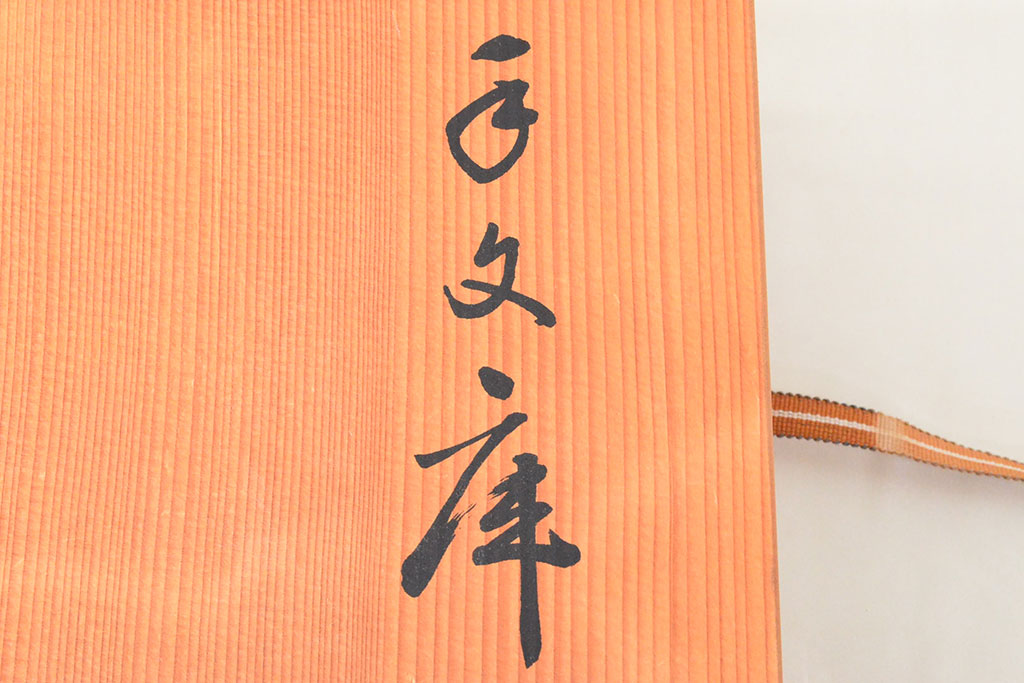 手文庫